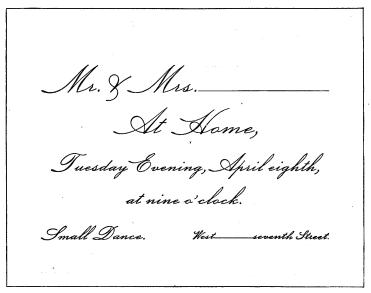 Mr. & Mrs.
At Home,
Tuesday Evening, April eighth,
at nine o'clock.
Small Dance. West seventh Street.